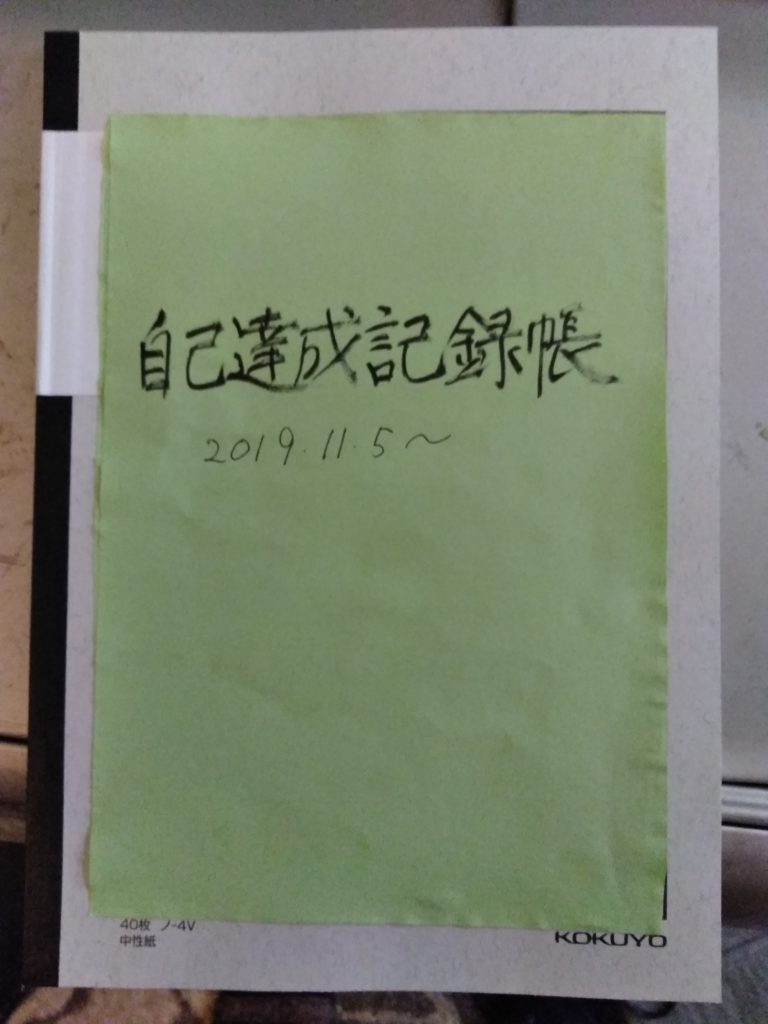 自己達成記録帳
2019.11.5〜
40枚 ノ-4V
中性紙
KOKUYO